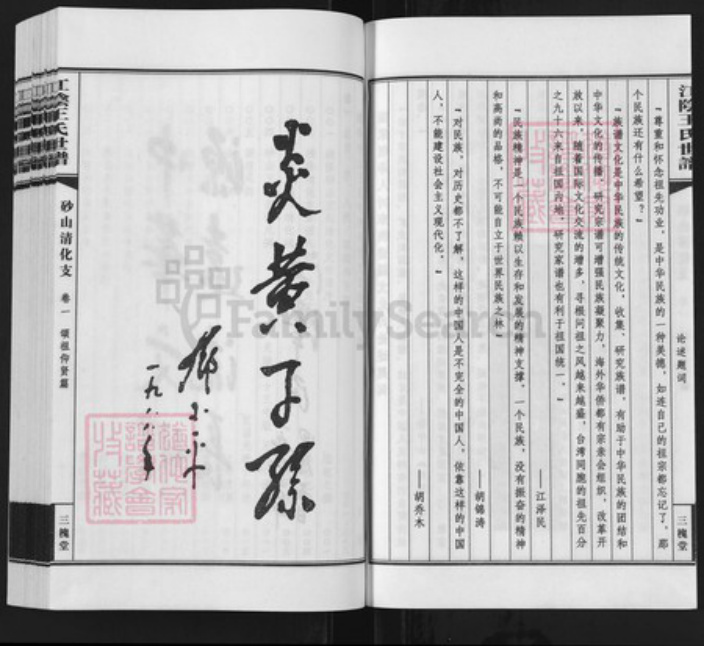 江阴王氏世谱
论述题词
三槐堂
“尊重和怀念祖先功业，是中华民族的一种美德，如连自己的祖宗都忘记了，那
个民族还有什么希望？”
“族谱文化是中华民族的传统文化，收集、研究族谱，有助于中华民族的团结和
中华文化的传播，研究宗谱可增强民族凝聚力，海外华侨都有宗亲会组织，改革开
放以来，随着国际文化交流的增多，寻根问祖之风越来越盛，台湾同胞的祖先百分
之九十六来自祖国内地，研究家谱也有利于祖国统一。”
——江泽民
“民族精神是一个民族赖以生存和发展的精神支撑，一个民族，没有振奋的精神
和高尚的品格，不可能自立于世界民族之林”
——胡锦涛
“对民族、对历史都不了解，这样的中国人是不完全的中国人，依靠这样的中国
人，不能建设社会主义现代化。”
——胡乔木
炎黄子孙
邓小平
一九八八年
江阴王氏世谱
砂山清化支
卷一
颂祖仰贤篇
三槐堂
FamilySearch